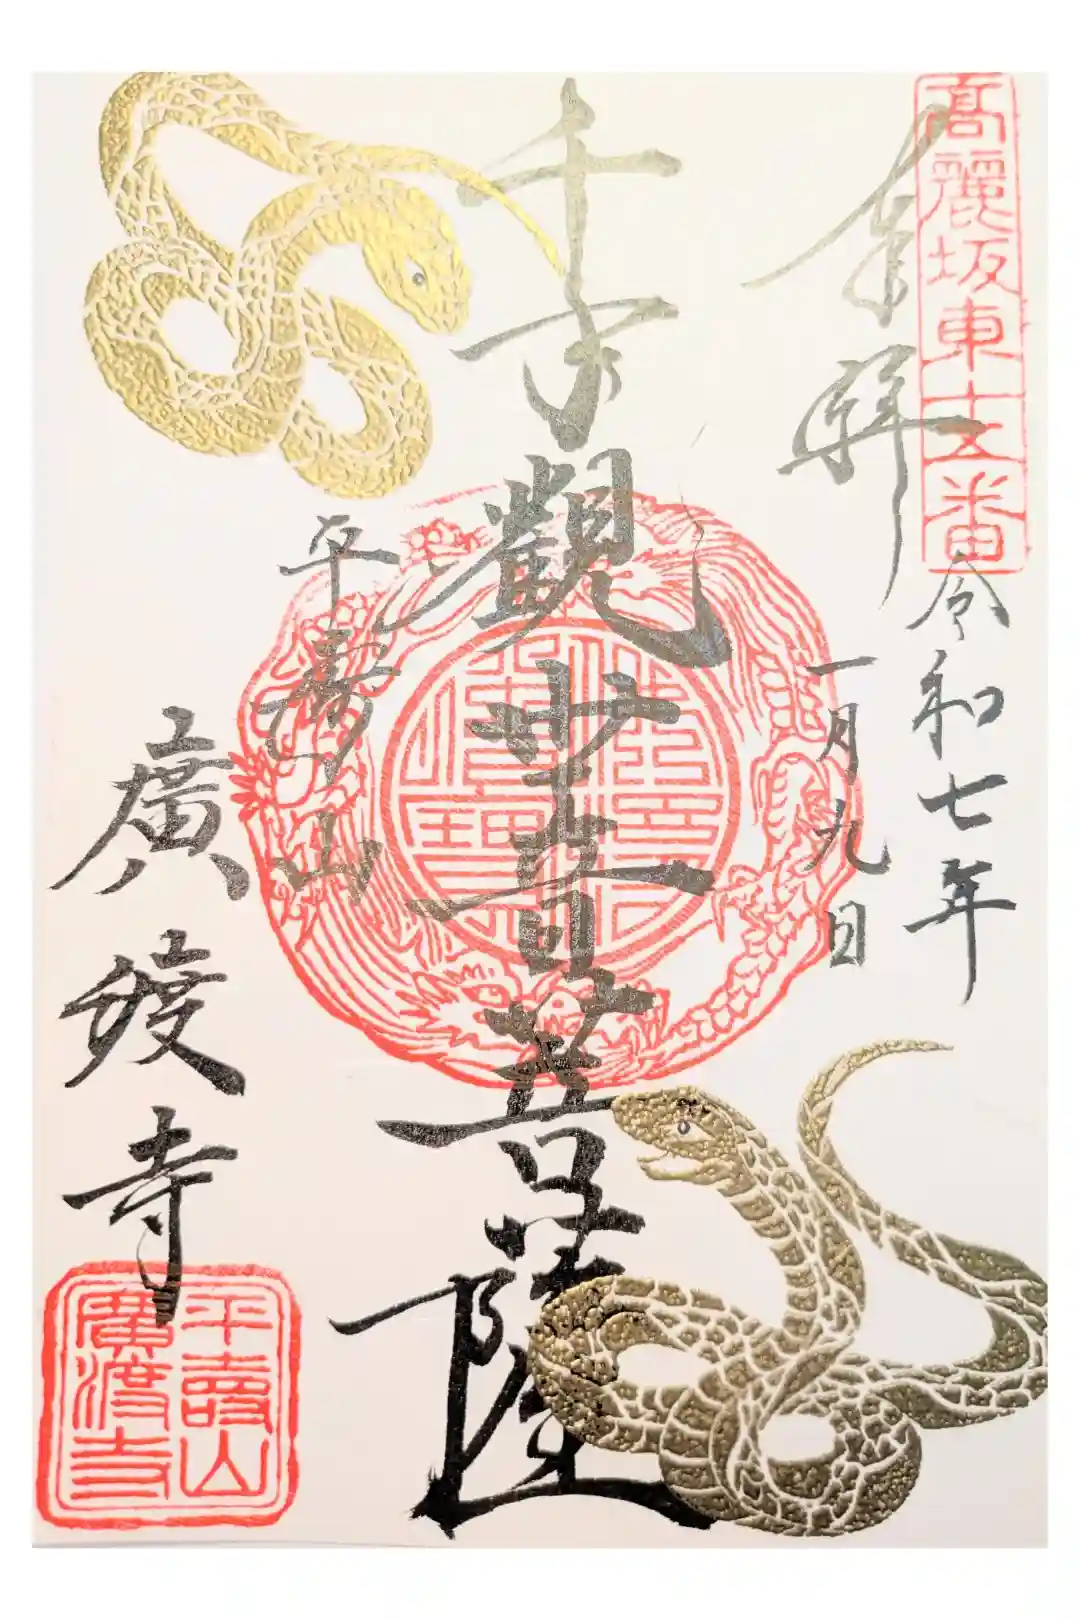 高麗坂東十五番
奉拝
令和七年
一月九日
千手觀世音菩薩
平壽山
廣渡寺
平壽山
廣渡寺